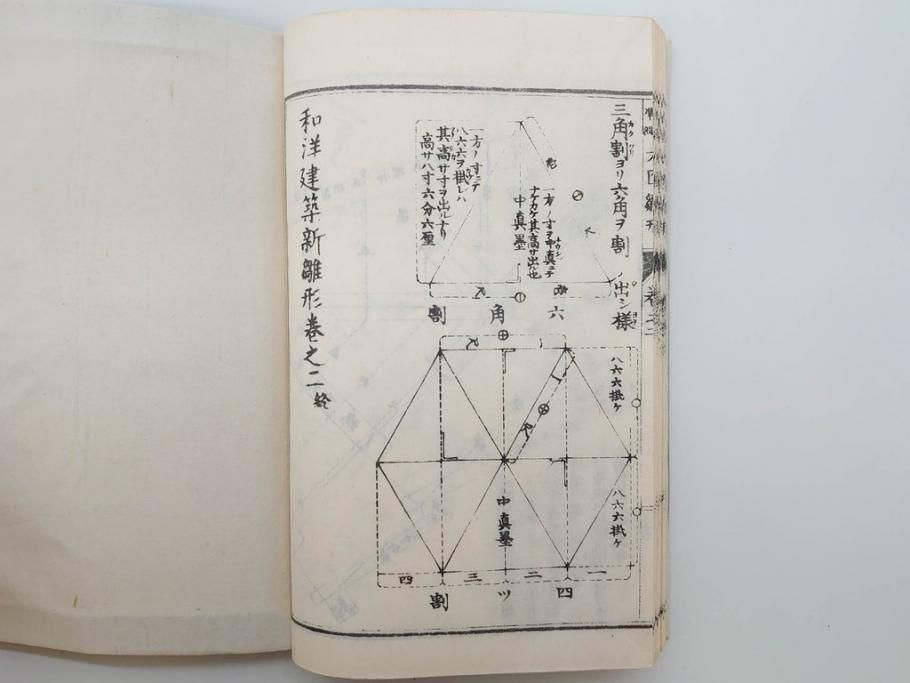 三角割ヨリ六角ヲ割ノ出シ様
一方ノ寸ヲ中真ニテ
ナゲカケ其高サ出ル也
中真墨
一方ノ寸ニテ
八六六ヲ掛レハ
其高サ寸ヲ出ルナリ
高サ八寸六分六厘
六角割
八六六掛ケ
八六六掛ケ
中真墨
一
二
三
四
四ツ割
和洋建築新雛形巻之二終